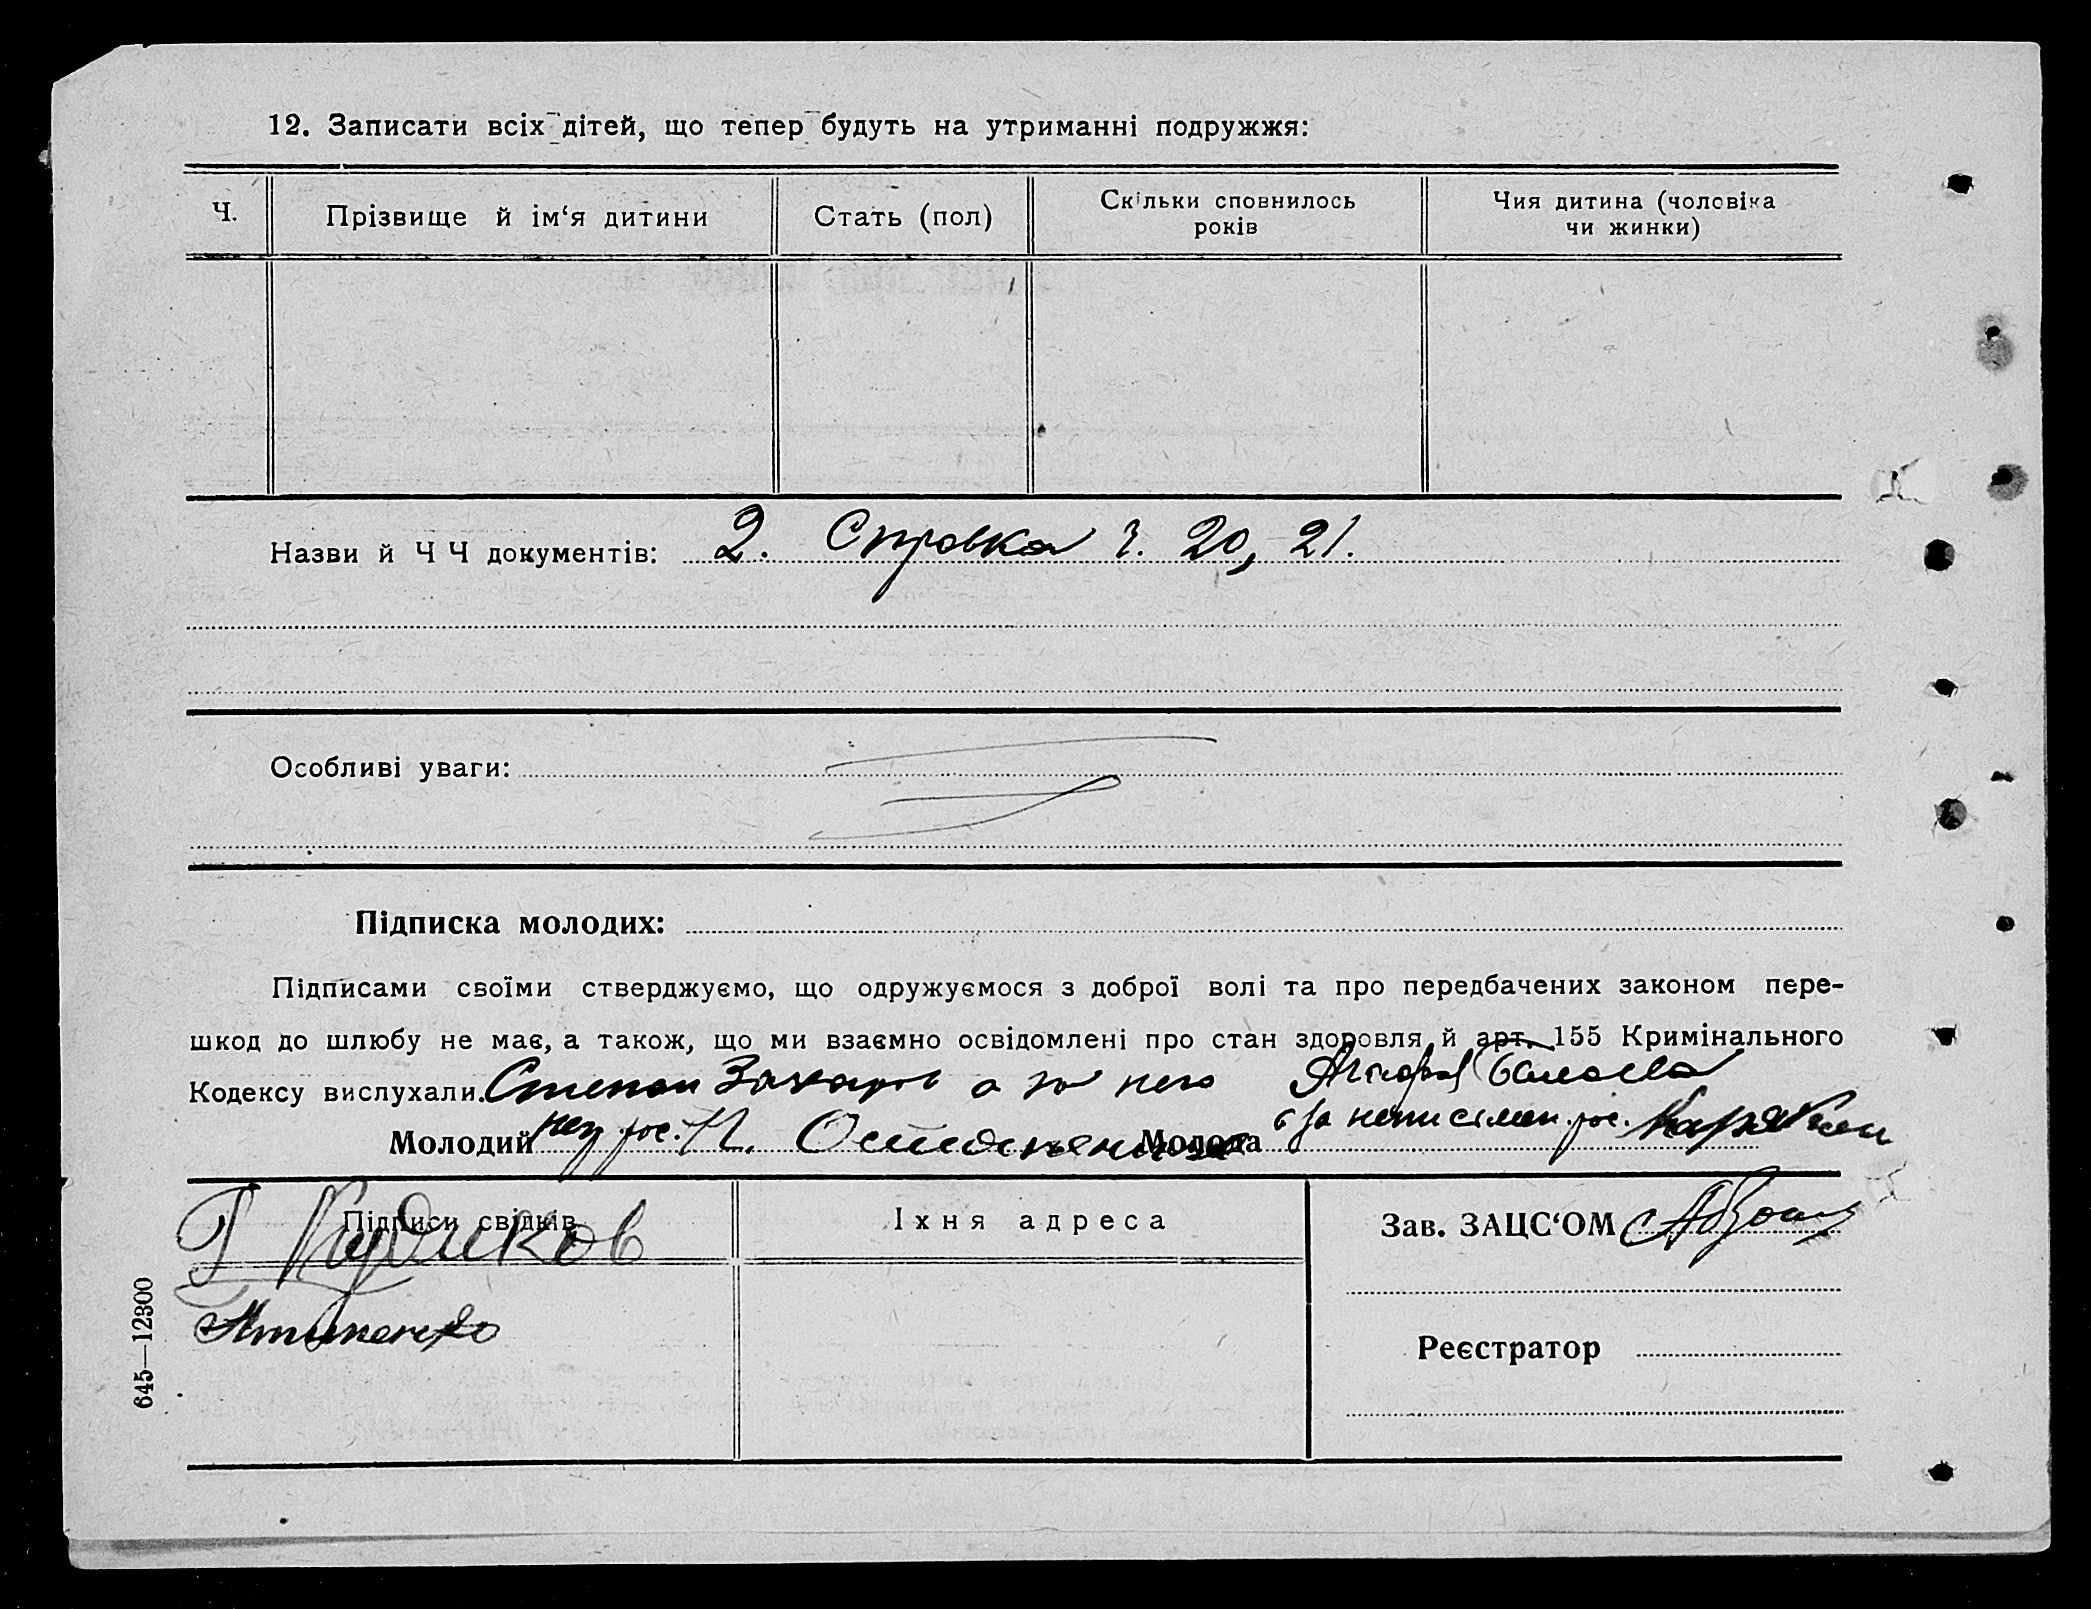 12. Записати всіх дітей, що тепер будуть на утриманні подружжя:
Ч.
Прізвище й ім‘я дитини
Стать (пол)
Скільки сповнилось
років
Чия дитина (чоловіка
чи жинки)
Назви й Ч Ч документів: 2. Справка ч. 20, 21.
Особливі уваги:
Підписка молодих:
Підписами своїми стверджуємо, що одружуємося з доброї волі та про передбачених законом пере-
шкод до шлюбу не має, а також, що ми взаємно освідомлені про стан здоровля й арт. 155 Кримінального
Кодексу вислухали. Степан Захаров а за него
Молодий рос. Молода за рос.
Підписи свідків
Їхня адреса
Зав. ЗАЦС‘ОМ
Г Кудиков
Реєстратор
645—12300